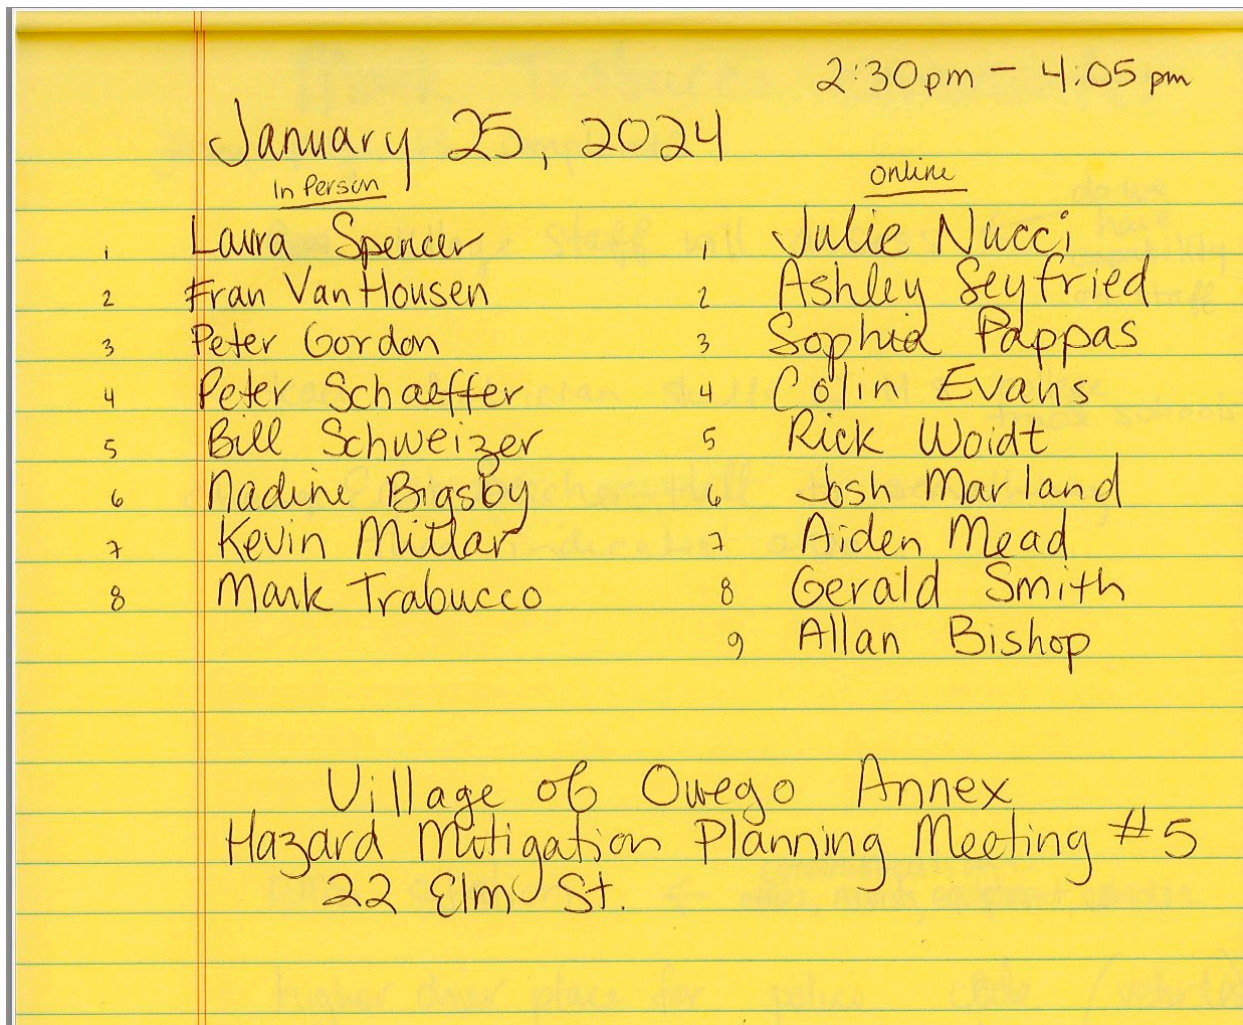 2:30pm - 4:05 pm
January 25, 2024
In Person
1 Laura Spencer
2 Fran VanHousen
3 Peter Gordon
4 Peter Schaeffer
5 Bill Schweizer
6 Nadine Bigsby
7 Kevin Millar
8 Mark Trabucco
online
1 Julie Nucci
2 Ashley Seyfried
3 Sophia Pappas
4 Colin Evans
5 Rick Woidt
6 Josh Marland
7 Aiden Mead
8 Gerald Smith
9 Allan Bishop
Village of Owego Annex
Hazard Mitigation Planning Meeting #5
22 Elm St.